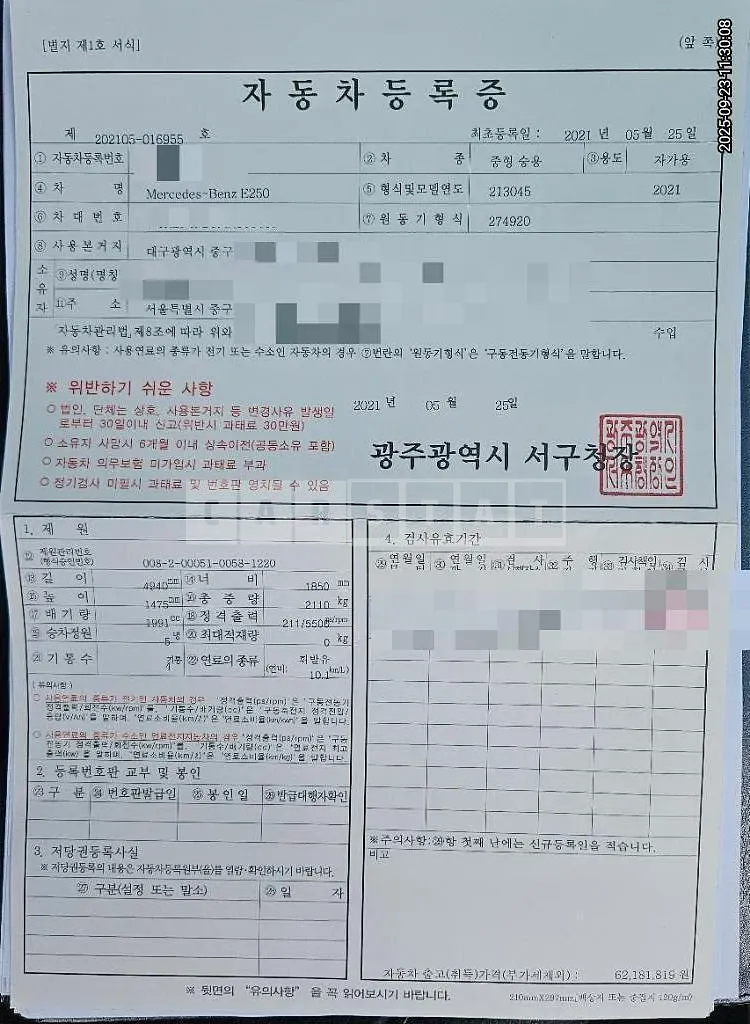 [별지 제1호 서식]
(앞 쪽
2025-09-23 11:30:08
자동차등록증
제 202105-016955 호
최초등록일 : 2021 년 05월 25일
① 자동차등록번호
② 차 종 중형 승용 ③용도 자가용
④ 차 명 Mercedes-Benz E250
⑤ 형식및모델연도 213045 2021
⑥ 차 대 번 호
⑦ 원 동 기 형 식 274920
⑧ 사 용 본 거 지 대구광역시 중구
소유자
⑨성명(명칭
주 소 서울특별시 중구
자동차관리법」제8조에 따라 위와
수입
※ 유의사항 : 사용연료의 종류가 전기 또는 수소인 자동차의 경우 ⑦번란의 '원동기형식'은 '구동전동기형식'을 말합니다.
※ 위반하기 쉬운 사항
○ 법인, 단체는 상호, 사용본거지 등 변경사유 발생일
로부터 30일이내 신고(위반시 과태료 30만원)
○ 소유자 사망시 6개월 이내 상속이전(공동소유 포함)
○ 자동차 의무보험 미가입시 과태료 부과
○ 정기검사 미필시 과태료 및 번호판 영치될 수 있음
2021 년 05 월 25일
광주광역시 서구청장
CARSTAT
1. 제 원
⑫ 제원관리번호
(형식승인번호) 008-2-00051-0058-1220
⑬ 길 이 4940mm ⑭ 너 비 1850 mm
⑮ 높 이 1475mm ⑯ 총 중 량 2110 kg
⑰ 배 기 량 1991cc ⑱ 정 격 출 력 211/5500ps/rpm
⑲ 승차정원 5 명 ⑳ 최대적재량 0 kg
㉑ 기 통 수 4 기통 ㉒ 연료의 종류 휘발유
(연비: 10.1 km/L)
( 유의사항 )
○ 사용연료의 종류가 전기인 자동차의 경우 '정격출력(ps/rpm)'은 '구동전동기
정격출력/회전수(kw/rpm)'를, '기통수/배기량(cc)'은 '구동축전지 정격전압/
용량(V/Ah)'을 말하며, '연료소비율(km/ℓ)'은 '연료소비율(km/kwh)'을 말합니다.
○ 사용연료의 종류가 수소인 연료전지자동차의 경우 '정격출력(ps/rpm)'은 '구동
전동기 정격출력/회전수(kw/rpm)'를, '기통수/배기량(cc)'은 '연료전지 최고
출력(kw)'을 말하며, '연료소비율(km/ℓ)'은 '연료소비율(km/kg)'을 말합니다.
2. 등록번호판 교부 및 봉인
㉓ 구 분 ㉔ 번호판발급일 ㉕ 봉 인 일 ㉖ 발급대행자확인
3. 저당권등록사실
※ 저당권등록의 내용은 자동차등록원부(을)를 열람·확인하시기 바랍니다.
㉗ 구분(설정 또는 말소) ㉘ 일 자
4. 검사유효기간
㉙ 연월일 ㉚ 연월일 ㉛ 검 사 ㉜ 주 행 ㉝ 검사책임 ㉞ 검 사
※주의사항:㉙항 첫째 난에는 신규등록인을 적습니다.
비고
자동차 출고(취득)가격(부가세제외) : 62,181,819 원
※ 뒷면의 "유의사항" 을 꼭 읽어보시기 바랍니다.
210mm×297mm